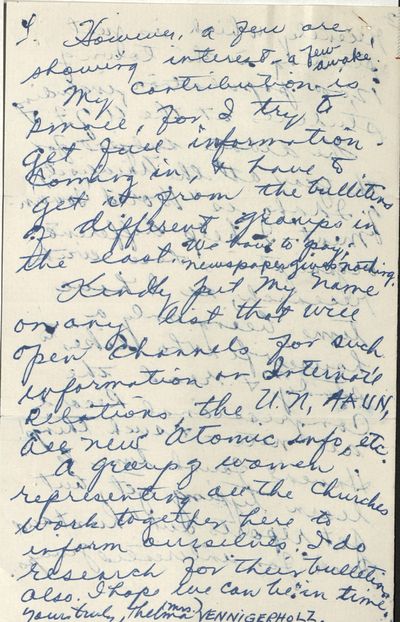 4 However, a few are
showing interest - a few awake.
My contribution is
small, for I try to
get full information
coming in, & have to
get it from the bulletins
of different groups in
the east. We have to pay,
newspaper gives nothing.
Kindly put my name
on any list that will
open channels for such
information on Internat'l
relations, the U.N, AAUN,
all new atomic info, etc.
A group of women
representing all the Churches
work together here to
inform ourselves. I do
research for their bulletin
also. I hope we can be in time.
Yours truly, Thelma (Mrs.)